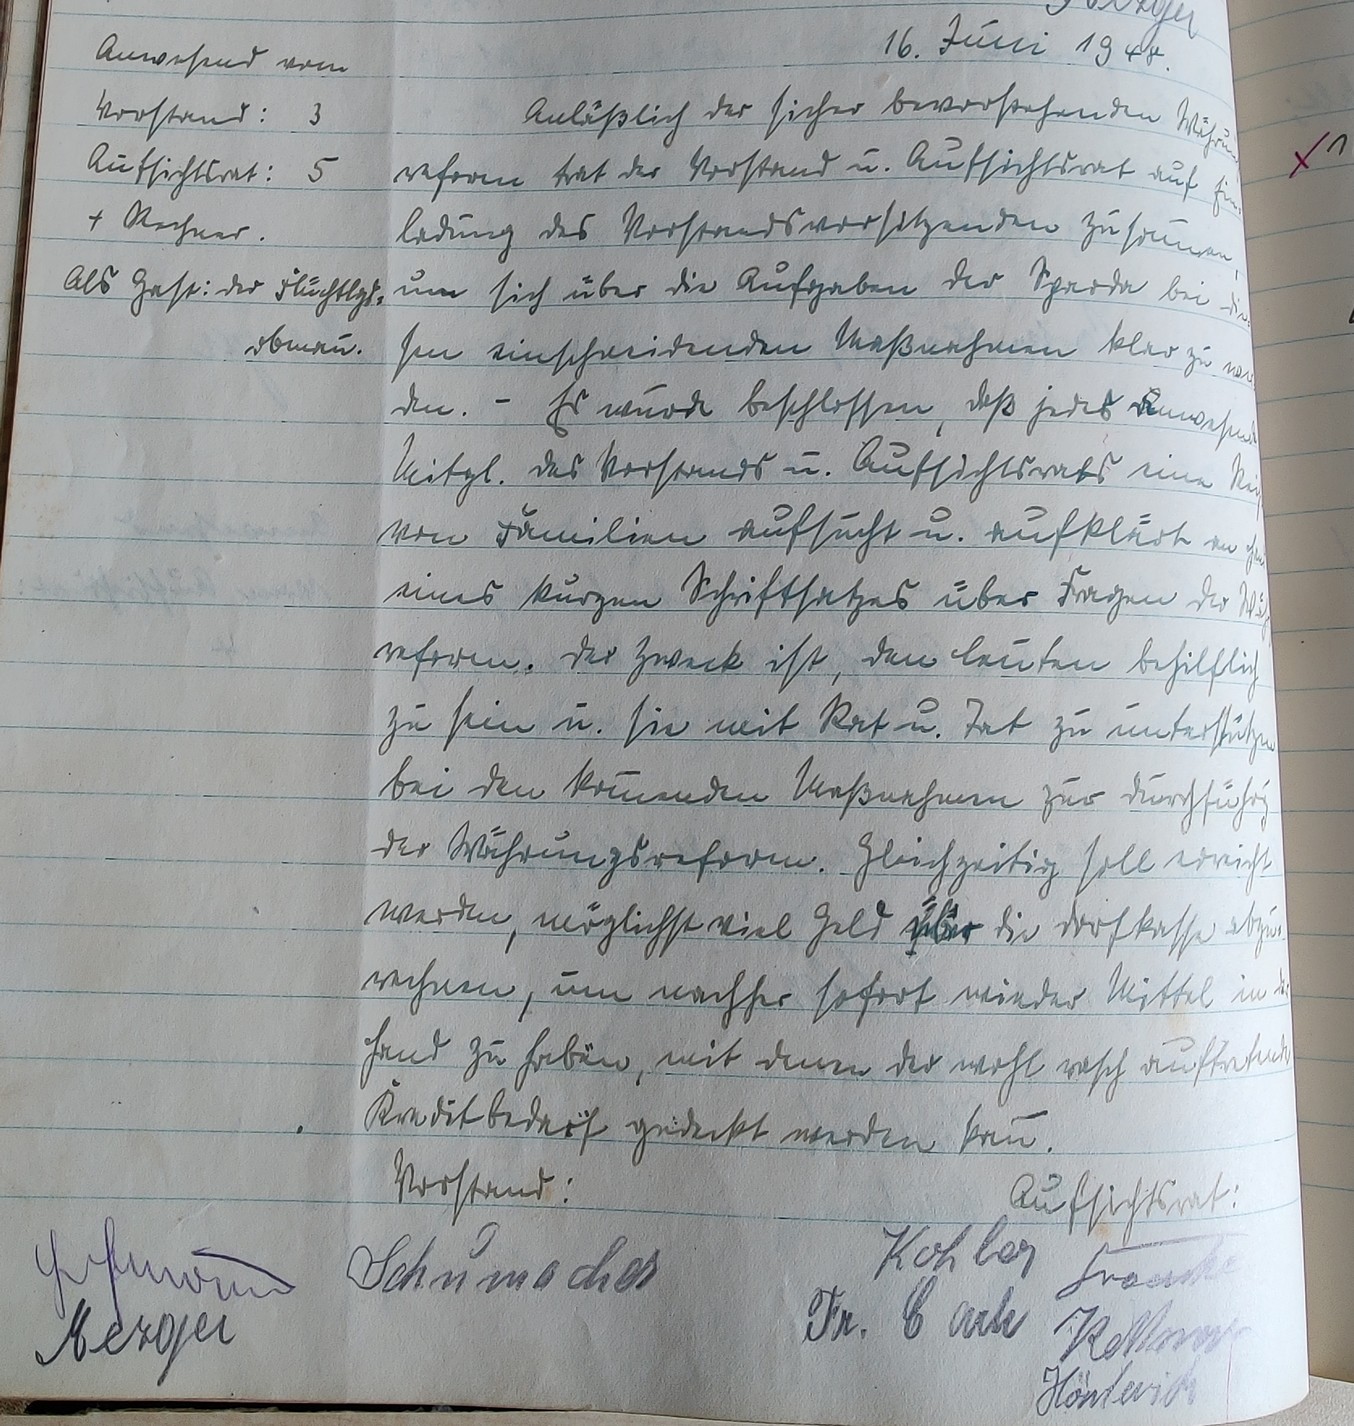 16. Juni 1948.
Anwesend vom
Vorstand: 3
Aufsichtsrat: 5
+ Rechner.
Als Gast: der Flüchtlgs-
obmañ.
Anläßlich der sicher bevorstehenden Währun
reform trat der Vorstand u. Aufsichtsrat auf Ein
ladung des Vorstandsvorsitzenden zusam̄en,
um sich über die Aufgaben der Sparda bei die
sen einschneidenden Maßnahmen klar zu wer
den. - Es wurde beschlossen, daß jedes Anwesende
Mitgl. des Vorstands u. Aufsichtsrats eine Rei
von Familien aufsucht u. aufklärt an
eines kurzen Schriftsatzes über Fragen der Wäh
reform. Der Zweck ist, den Leuten behilflich
zu sein u. sie mit Rat u. Tat zu unterstützen
bei den kom̄enden Maßnahmen zur Durchführg
der Währungsreform. Gleichzeitig soll erreicht
werden, möglichst viel Geld über die Dorfkasse abzu-
rechnen, um nachher sofort wieder Mittel in der
Hand zu haben, mit denen der wohl rasch auftretende
Kreditbedarf gedeckt werden kañ.
Vorstand: Aufsichtsrat:
Schumacher Kohler
Mezger Fr. Carle